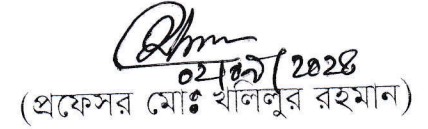 ০২/০৭/২০২৪
(প্রফেসর মোঃ খলিলুর রহমান)